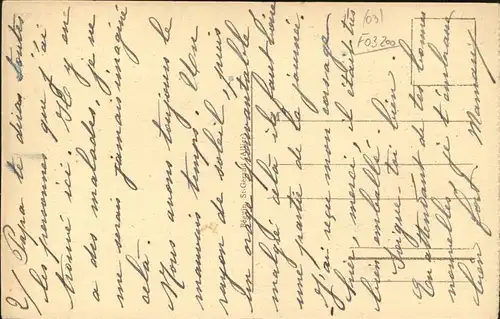 2/ Papa te dira toutes
les personnes que j'ai
trouvé ici. Il y en
a des malades, je ne
me serais jamais imaginé
cela.
Nous avons toujours le
mauvais temps. Un
rayon de soleil, puis
un orage épouvantable
malgré cela il faut dire
une partie de la journée.
- J'ai reçu mon corsage
hier, merci, il était très
bien emballé.
Soigne-toi bien.
En attendant de tes bonnes
nouvelles, je t'embrasse
bien fort
(03)
F03200